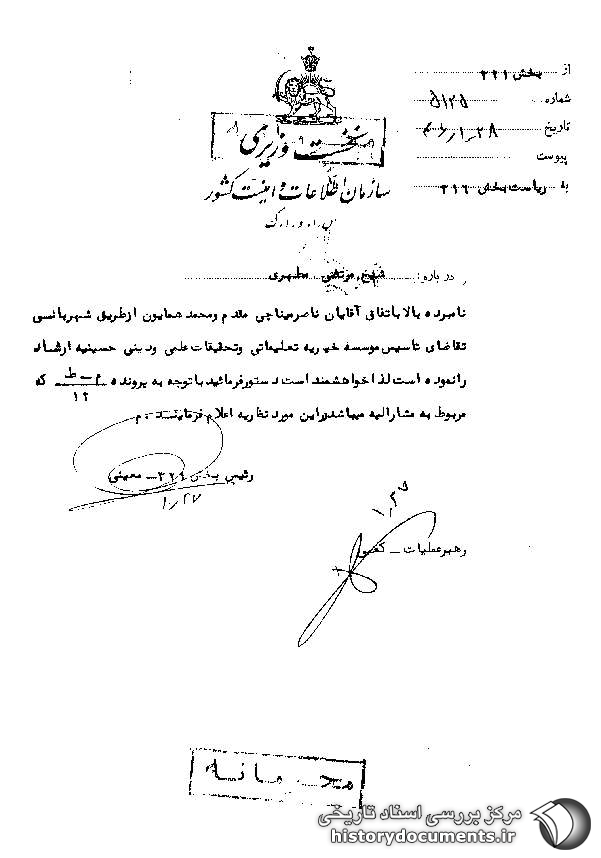 از بخش ۳۲۱
شماره ۵۱۲۵
تاریخ ۴۶/۱/۲۸
پیوست
به ریاست بخش ۳۱۶
نخست وزیری
سازمان اطلاعات و امنیت کشور
س.ا.و.ا.ک
درباره: شیخ مرتضی مطهری
نامبرده بالا باتفاق آقایان ناصر میناچی مقدم و محمد همایون از طریق شهربانسی
تقاضای تاسیس موسسه خیریه تعلیماتی و تحقیقات علمی و دینی حسینیه ارشاد
را نموده است لذا خواهشمند است دستور فرمائید با توجه به پرونده م-ط/۱۲ که
مربوط به مشارالیه میباشد در این مورد نظریه اعلام فرمایند. م
رئیس بخش ۳۲۱ - معینی
۱/۲۷
۱/۲۵
رهبر عملیات -
محرمانه
مرکز بررسی اسناد تاریخی
historydocuments.ir